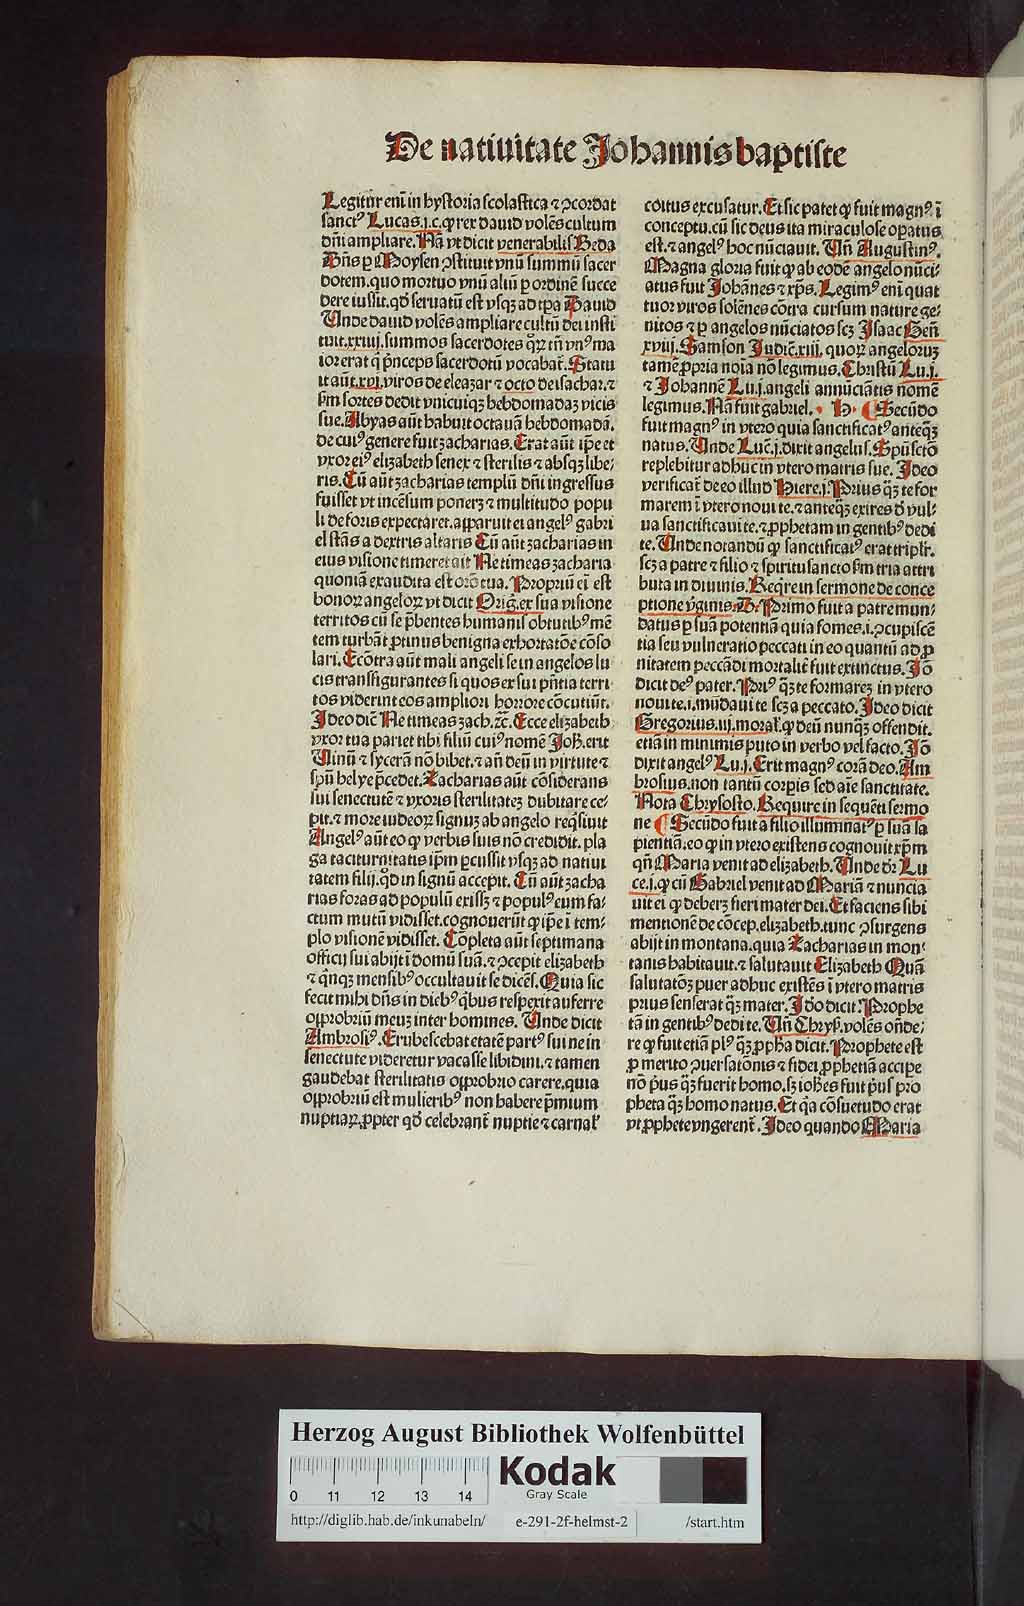 De natiuitate Johannis baptiste
Legitur em̄ in hystoria scolastica ⁊ ꝯcordat
sanctꝰ Lucas.j.c. ꝙ rex dauid volēs cultum
dn̄i ampliare. Nā vt dicit venerabilis Beda
Dn̄s ꝑ Moysen ꝯstituit vnū summū sacer
dotem. quo mortuo vnū aliū ꝑ ordinē succe
dere iussit. qd̄ seruatū est vsqꝫ ad tꝑa Dauid
Unde dauid volēs ampliare cultū dei insti
tuit.xxiiij. summos sacerdotes q̄ꝝ tn̄ vnꝰ ma
ior erat q̄ pn̄ceps sacerdotū vocabat̄. Statu
it aūt.xvj. viros de eleazar ⁊ octo de isachar. ⁊
ẜm sortes dedit vnicuiqꝫ hebdomadaꝫ vicis
sue. Abyas aūt habuit octauā hebdomadā.
de cuiꝰ genere fuit zacharias. Erat aūt ip̄e et
vxor eiꝰ elizabeth senex ⁊ sterilis ⁊ absqꝫ libe⸗
ris. Cū aūt zacharias templū dn̄i ingressus
fuisset vt incēsum poneret ⁊ multitudo popu
li de foris expectaret. apparuit ei angelꝰ gabri
el stās a dextris altaris Cū aūt zacharias in
eius visione timeret ait Ne timeas zacharia
quoniā exaudita est orō tua. Propriū em̄ est
bonoꝝ angeloꝝ vt dicit Oriḡ. ex sua visione
territos cū se p̄bentes humanis obtutibꝰ mē
tem turbāt ꝓtinus benigna exhortatōe cōso
lari. Ecōtra aūt mali angeli se in angelos lu
cis transfigurantes si quos ex sui pn̄tia terri
tos viderint eos ampliori horrore cōcutiūt.
Ideo dic̄ Ne timeas zach. ⁊c̄. Ecce elizabeth
vxor tua pariet tibi filiū cuiꝰ nomē Joh̄. erit
Uinū ⁊ sycerā nō bibet. ⁊ an̄ deū in virtute ⁊
spū helye p̄cedet. Zacharias aūt cōsiderans
sui senectutē ⁊ vxoris sterilitateꝫ dubitare ce⸗
pit. ⁊ more iudeoꝝ signuꝫ ab angelo req̄siuit
Angelꝰ aūt eo ꝙ verbis suis nō credidit. pla
ga taciturnitatis ip̄m ꝑcussit vsqꝫ ad natiui
tatem filij. qd̄ in signū accepit. Cū aūt zacha
rias foras ad populū exissꝫ ⁊ populꝰ eum fa⸗
ctum mutū vidisset. cognouerūt ꝙ ip̄e ī tem⸗
plo visionē vidisset. Cōpleta aūt septimana
officij sui abijt ī domū suā. ⁊ ꝯcepit elizabeth
⁊ qn̄qꝫ mensibꝰ occultauit se dicēs. Quia sic
fecit mihi dn̄s in diebꝰ qꝫbus respexit auferre
opprobriū meuꝫ inter homines. Unde dicit
Ambrosiꝰ. Erubescebat etatē partꝰ sui ne in
senectute videretur vacasse libidini. ⁊ tamen
gaudebat sterilitatis opprobrio carere. quia
opprobriū est mulieribꝰ non habere p̄mium
nuptiaꝝ. ꝓpter qd̄ celebrant̄ nuptie ⁊ carnal̓
coitus excusatur. Et sic patet ꝙ fuit magnꝰ ī
conceptu. cū sic deus ita miraculose oꝑatus
est. ⁊ angelꝰ hoc nūciauit. Un̄ Augustinꝰ.
Magna gloria fuit ꝙ ab eodē angelo nūci⸗
atus fuit Johānes ⁊ xp̄s. Legimꝰ em̄ quat
tuor viros solēnes cōtra cursum nature ge⸗
nitos ⁊ ꝑ angelos nūciatos scꝫ Isaac Gen̄
xviij. Samson Judic̄.xiij. quoꝝ angeloruꝫ
tamē ꝓpria noīa nō legimus. Christū Lu.j.
⁊ Johannē Lu.j. angeli annūciātis nomē
legimus. Nā fuit gabriel. H. Secūdo
fuit magnꝰ in vtero quia sanctificatꝰ anteqꝫ̄
natus. Unde Luc̄.j. dixit angelus. Spū sctō
replebitur adhuc in vtero matris sue. Ideo
verificat̄ de eo illud Hiere.j. Prius qꝫ̄ te for
marem ī vtero noui te. ⁊ anteqꝫ̄ exires d̄ vul⸗
ua sanctificaui te. ⁊ ꝓphetam in gentibꝰ dedi
te. Unde notandū ꝙ sanctificatꝰ erat tripl̓r.
scꝫ a patre ⁊ filio ⁊ spiritu sancto ẜm tria attri
buta in diuinis. Req̄re in sermone de conce
ptione v̄ginis. D. Primo fuit a patre mun⸗
datus ꝑ suā potentiā quia fomes .i. ꝯcupiscē
tia seu vulneratio peccati in eo quantū ad ꝓ
nitatem peccādi mortalit̄ fuit extinctus. Iō
dicit deꝰ pater. Priꝰ qꝫ̄ te formareꝫ in vtero
noui te .i. mūdaui te scꝫ a peccato. Ideo dicit
Gregorius.iij. moral̓. ꝙ deū nunqꝫ̄ offendit.
etiā in minimis puto in verbo vel facto. Iō
dixit angelꝰ Lu.j. Erit magnꝰ corā deo. Am
brosius. non tantū corꝑis sed aīe sanctitate.
Nota Chrysosto. Require in sequēti sermo
ne Secūdo fuit a filio illuminatꝰ ꝑ suā sa
pientiā. eo ꝙ in vtero existens cognouit xp̄m
qn̄ Maria venit ad elizabeth. Unde dr̄ Lu
ce.j. ꝙ cū Gabriel venit ad Mariā ⁊ nuncia
uit ei ꝙ deberꝫ fieri mater dei. Et faciens sibi
mentionē de cōcep. elizabeth. tunc ꝯsurgens
abijt in montana. quia Zacharias in mon⸗
tanis habitauit. ⁊ salutauit Elizabeth Quā
salutatōꝫ puer adhuc existēs ī vtero matris
prius senserat qꝫ̄ mater. Idō dicit. Prophe
tā in gentibꝰ dedi te. Un̄ Chrys̄. volēs on̄de⸗
re ꝙ fuit etiā plꝰ qꝫ̄ ꝓpha dicit. Prophete est
ꝓ merito ꝯuersatōnis ⁊ fidei ꝓphetiā accipe
nō p̄us qꝫ̄ fuerit homo. sꝫ ioh̄es fuit pͥus pro
pheta qꝫ̄ homo natus. Et qͥa cōsuetudo erat
vt ꝓphete vngerent̄. Ideo quando Maria
Herzog August Bibliothek Wolfenbüttel
0 11 12 13 14
Kodak
Gray Scale
http://diglib.hab.de/inkunabeln/ e-291-2f-helmst-2 /start.htm